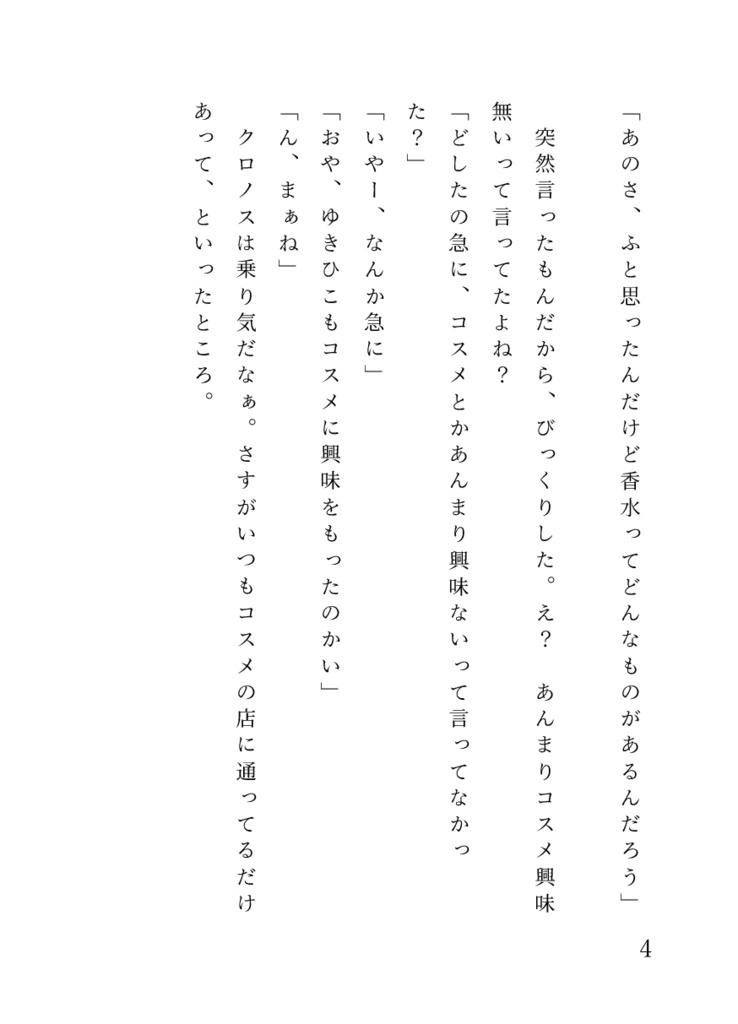 「あのさ、ふと思ったんだけど香水ってどんなものがあるんだろう」
　突然言ったもんだから、びっくりした。え？　あんまりコスメ興味
無いって言ってたよね？
「どしたの急に、コスメとかあんまり興味ないって言ってなかっ
た？」
「いやー、なんか急に」
「おや、ゆきひこもコスメに興味をもったのかい」
「ん、まぁね」
　クロノスは乗り気だなぁ。さすがいつもコスメの店に通ってるだけ
あって、といったところ。
4